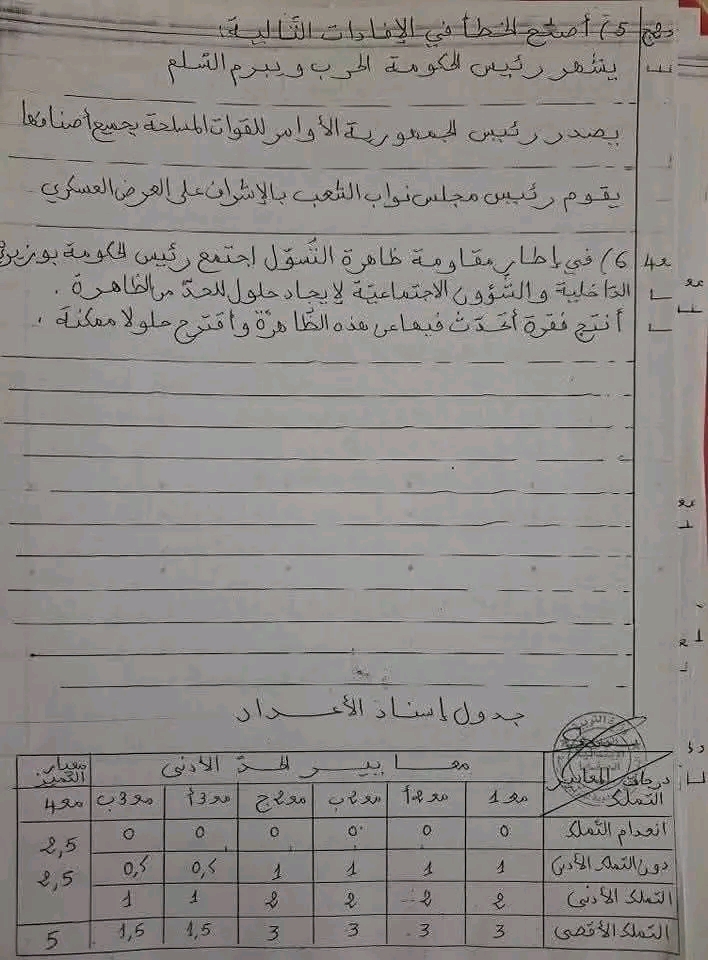 5) أصلح الخطأ في الإفادات التالية:
يشهر رئيس الحكومة الحرب ويبرم السلم
يصدر رئيس الجمهورية الأوامر للقوات المسلحة بجميع أصنافها
يقوم رئيس مجلس نواب الشعب بالإشراف على العرض العسكري
مع4 6) في إطار مقاومة ظاهرة التسوّل اجتمع رئيس الحكومة بوزيري
الدّاخلية والشّؤون الاجتماعيّة لإيجاد حلول للحدّ من الظاهرة.
أنتج فقرة أتحدّث فيها عن هذه الظّاهرة وأقترح حلولا ممكنة.
جدول إسناد الأعداد
درجات التملك المعايير معايير الحدّ الأدنى معيار التميز
مع1 مع2أ مع2ب مع2ج مع3أ مع3ب مع4
انعدام التملك 0 0 0 0 0 0
دون التملك الأدنى 1 1 1 1 0,5 0,5 2,5
التملك الأدنى 2 2 2 2 1 1 2,5
التملك الأقصى 3 3 3 3 1,5 1,5 5